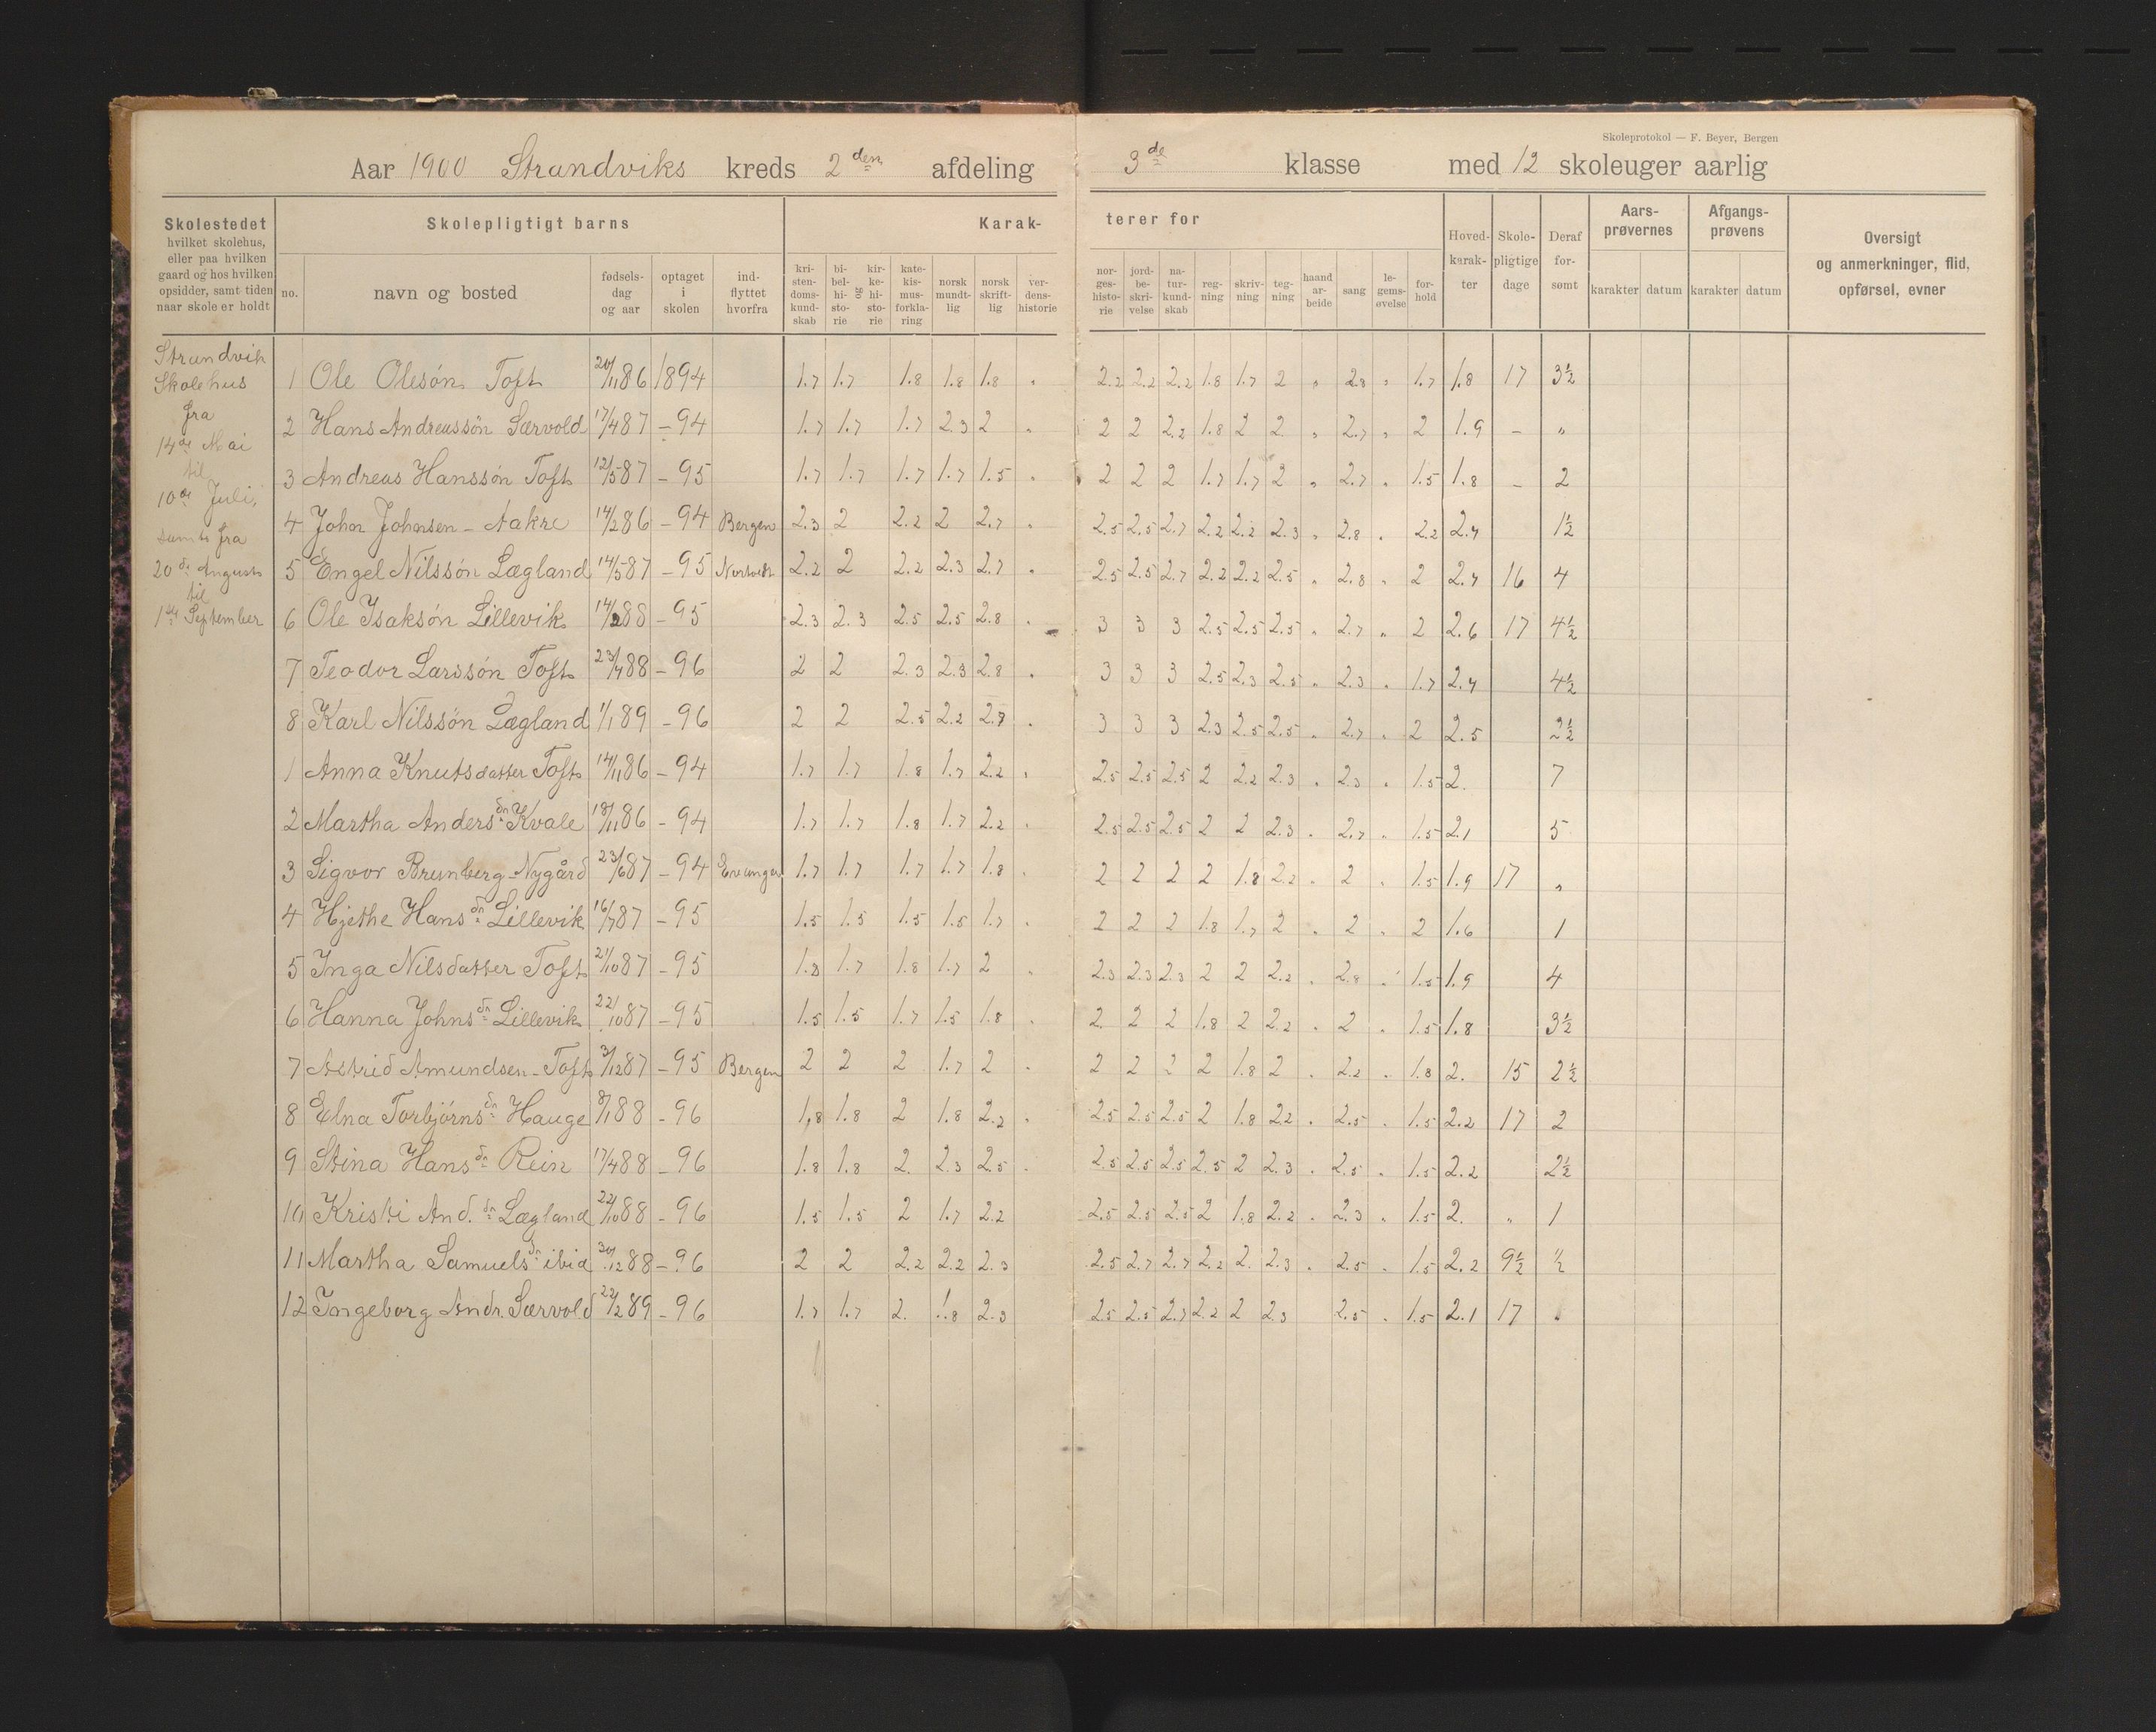 Skoleprotokol — F. Beyer, Bergen
Aar 1900 Strandviks kreds 2den afdeling 3de klasse med 12 skoleuger aarlig
Skolestedet hvilket skolehus, eller paa hvilken gaard og hos hvilken opsidder, samt tiden naar skole er holdt
Skolepligtigt barns
no. navn og bosted fødsels-dag og aar optaget i skolen ind-flyttet hvorfra
Karak-terer for
kri-sten-doms-kund-skab bi-bel-hi-sto-rie og kir-ke-hi-sto-rie kate-kis-mus-forkla-ring norsk mundt-lig norsk skrift-lig ver-dens-historie nor-ges-histo-rie jord-be-skri-velse na-tur-kund-skab reg-ning skriv-ning teg-ning haand ar-beide sang le-gems-øvelse for-hold
Hoved-karak-ter Skole-pligtige dage Deraf for-sømt
Aars-prøvernes karakter datum
Afgangs-prøvens karakter datum
Oversigt og anmerkninger, flid, opførsel, evner
Strandvik
Skolehus
fra
14de Mai
til
10de Juli,
samt fra
20de August
til
1ste September
1 Ole Olesøn Toft 20/11 86 1894 1.7 1.7 1.8 1.8 1.8 " 2.2 2.2 2.2 1.8 1.7 2 " 2.8 " 1.7 1.8 17 3½
2 Hans Andreassøn Særvold 17/4 87 – 94 1.7 1.7 1.7 2.3 2 " 2 2 2.2 1.8 2 2 " 2.7 " 2 1.9 – "
3 Andreas Hanssøn Toft 12/5 87 – 95 1.7 1.7 1.7 1.7 1.5 " 2 2 2 1.7 1.7 2 " 2.7 " 1.5 1.8 – 2
4 John Johnsen – Aakre 14/2 86 – 94 Bergen 2.3 2 2.2 2 2.7 " 2.5 2.5 2.7 2.2 2.2 2.3 " 2.8 " 2.2 2.4 1½
5 Engel Nilssøn Lægland 14/5 87 – 95 2.2 2 2.2 2.3 2.7 " 2.5 2.5 2.7 2.2 2.2 2.5 " 2.8 " 2 2.4 16 4
6 Ole Isaksøn Lillevik 14/2 88 – 95 2.3 2.3 2.5 2.5 2.8 " 3 3 3 2.5 2.5 2.5 " 2.7 " 2 2.6 17 4½
7 Teodor Larssøn Toft 23/4 88 – 96 2 2 2.3 2.3 2.8 " 3 3 3 2.5 2.3 2.5 " 2.3 " 1.7 2.4 4½
8 Karl Nilssøn Lægland 1/1 89 – 96 2 2 2.5 2.2 2.7 " 3 3 3 2.3 2.5 2.5 " 2.7 " 2 2.5 2½
1 Anna Knutsdatter Toft 14/11 86 – 94 1.7 1.7 1.8 1.7 2.2 " 2.5 2.5 2.5 2 2.2 2.3 " 2.3 " 1.5 2. 7
2 Martha Anders dn Kvale 18/11 86 – 94 1.7 1.7 1.8 1.7 2.2 " 2.5 2.5 2.5 2 2 2.3 " 2.7 " 1.5 2.1 5
3 Sigvor Brunberg – Nygård 23/6 87 – 94 Evanger 1.7 1.7 1.7 1.7 1.8 " 2 2 2 2 1.8 2.2 " 2 " 1.5 1.9 17 "
4 Hjethe Hans dn Lillevik 16/7 87 – 95 1.5 1.5 1.5 1.5 1.7 " 2 2 2 1.8 1.7 2 " 2 " 2 1.6 1
5 Inga Nilsdatter Toft 21/10 87 – 95 1.8 1.7 1.8 1.7 2 " 2.3 2.3 2.3 2 2 2.2 " 2.8 " 1.5 1.9 4
6 Hanna Johns dn Lillevik 22/10 87 – 95 1.5 1.5 1.7 1.5 1.8 " 2. 2 2 1.8 2 2.2 " 2 " 1.5 1.8 3½
7 Astrid Amundsen – Toft 3/12 87 – 95 Bergen 2 2 2 1.7 2 " 2 2 2 2 1.8 2 " 2.2 " 1.8 2. 15 2½
8 Elna Torbjørns dn Hauge 8/1 88 – 96 1.8 1.8 2 1.8 2.2 " 2.5 2.5 2.5 2 1.8 2.2 " 2.5 " 1.5 2.2 17 2
9 Stina Hans dn Rein 17/4 88 – 96 1.8 1.8 2. 2.3 2.5 " 2.5 2.5 2.5 2.5 2 2.3 " 2.5 " 1.5 2.2 2½
10 Kristi And. dn Lægland 22/10 88 – 96 1.5 1.5 2 1.7 2.2 2.5 2.5 2.5 2 1.8 2.2 " 2.3 " 1.5 2. " 1
11 Martha Samuels dn ibid 30/12 88 – 96 2 2 2.2 2.2 2.3 2.5 2.7 2.7 2.2 2. 2.3 " 2.5 " 1.5 2.2 9½ ½
12 Ingeborg Andr. Særvold 22/2 89 – 96 1.7 1.7 2. 1.8 2.3 2.5 2.5 2.7 2.2 2 2.3 2.5 " 1.5 2.1 17 "